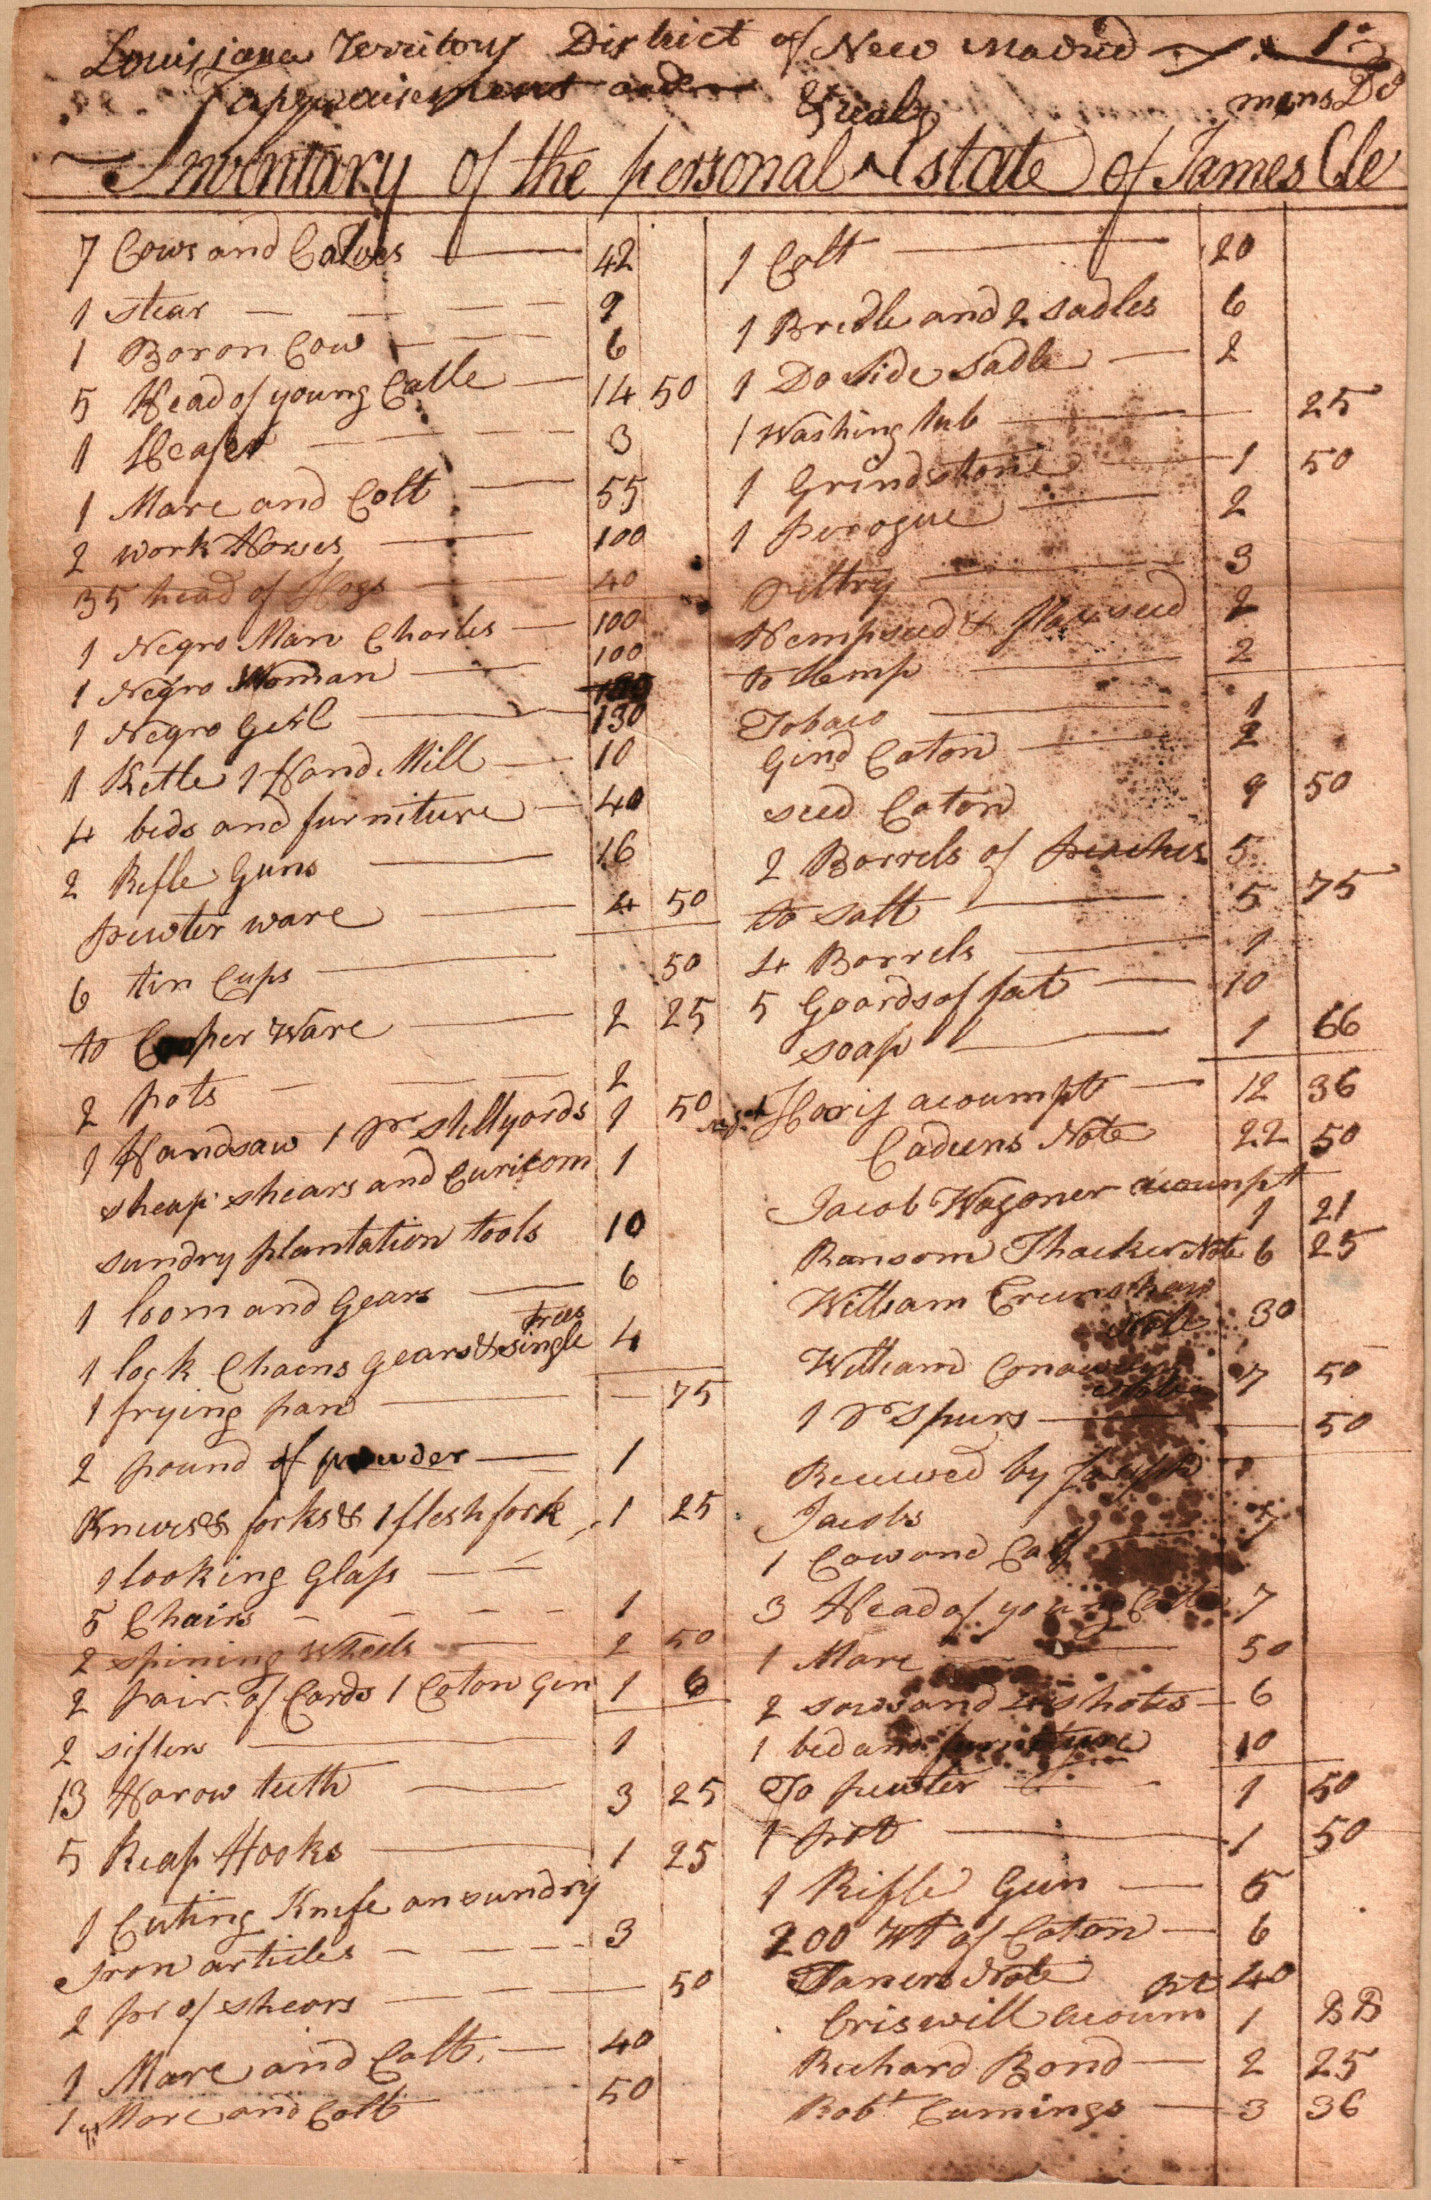 Louisiana Territory District of New Madrid 1
appraisement and
& real
mens Do
Inventory of the personal ^ Estate of James Cle
7 Cows and Calves 42
1 stear 9
1 Boron Cow 6
5 Head of young Catle 14 50
1 Heafer 3
1 Mare and Colt 55
2 work Horses 100
35 head of Hogs 40
1 Negro Man Charles 100
1 Negro Woman 100
1 Negro Gerl 130
1 Kettle 1 Hand Mill 10
4 beds and furniture 40
2 Rifle Guns 16
pewter ware 4 50
6 tin Cups 50
to Cooper Ware 2 25
2 pots 2
1 Handsaw 1 pr stillyards 1 50
sheap shears and Curicom 1
sundry plantation tools 10
1 loom and Gears 6
trees
1 lock Chains Gears & single 4
1 frying pan 75
2 pound of powder 1
Knives & forks & 1 flesh fork 1 25
1 looking Glass
5 Chairs 1
2 spining wheels 2 50
2 pair of Cards 1 Coton Gin 1 6
2 sifters 1
13 Harow teeth 3 25
5 Reap Hooks 1 25
1 Cuting Knife an sundry
Iron articles 3
2 pr of shears 50
1 Mare and Colt 40
1 Mare and Colt 50
1 Colt 20
1 Bredle and 2 sadles 6
1 Do side sadle 2
1 Washing tub 25
1 Grindstone 1 50
1 perogue 2
peltry 3
Hempseed & flaxseed 2
to Hemp 2
Tobaco 1
Gind Caton 2
seed Caton 9 50
2 Barrels of peaches 5
to salt 5 75
4 Barrels 1
5 Goards of fat 10
soap 1 66
Haris acoumpt 12 36
Cadeens Note 22 50
Jacob Wagoner acoumpt
1 21
Ransom Thacker Note 6 25
William Crunshaw
Note 30
William
7 50
1 pr spurs 50
Receiued by Joseph
Jacobs
1 Cow and Calf 7
3 Head of young Catle 7
1 Mare 50
2 sows and shotes 6
1 bed and furniture 10
To pewter 1 50
1 pot 1 50
1 Rifle Gun 5
200 Wt of Coton 6
Taners Note 40
Criswill acoum pt 1 88
Richard Bond 2 25
Robt Cumings 3 36